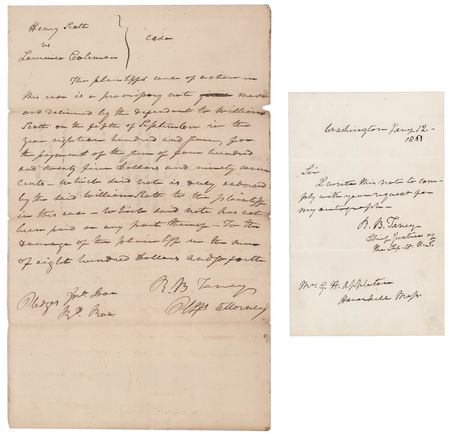 Henry Scott
vs
Lawrence Coleman
case
The plaintiffs cause of action in
this case is a promissory note made
and delivered by the defendant to William
Scott on the fifth of September in the
year eighteen hundred and seven, for
the payment of the sum of four hundred
and twenty five Dollars and ninety seven
cents - which said note is duly endorsed
by the said William Scott to the plaintiff
in this case - which said note has not
been paid or any part thereof - To the
damage of the plaintiff in the sum
of eight hundred Dollars and so forth
R. B. Taney
Plffs attorney
Pledges Jno. Doe
Rd. Roe
Washington Jany 12.
1861
Sir
I write this note to com-
ply with your request for
my autograph-
R. B. Taney
Chief Justice of
the Sup. Ct. U. S.
Mr. G. H. Appleton
Mass